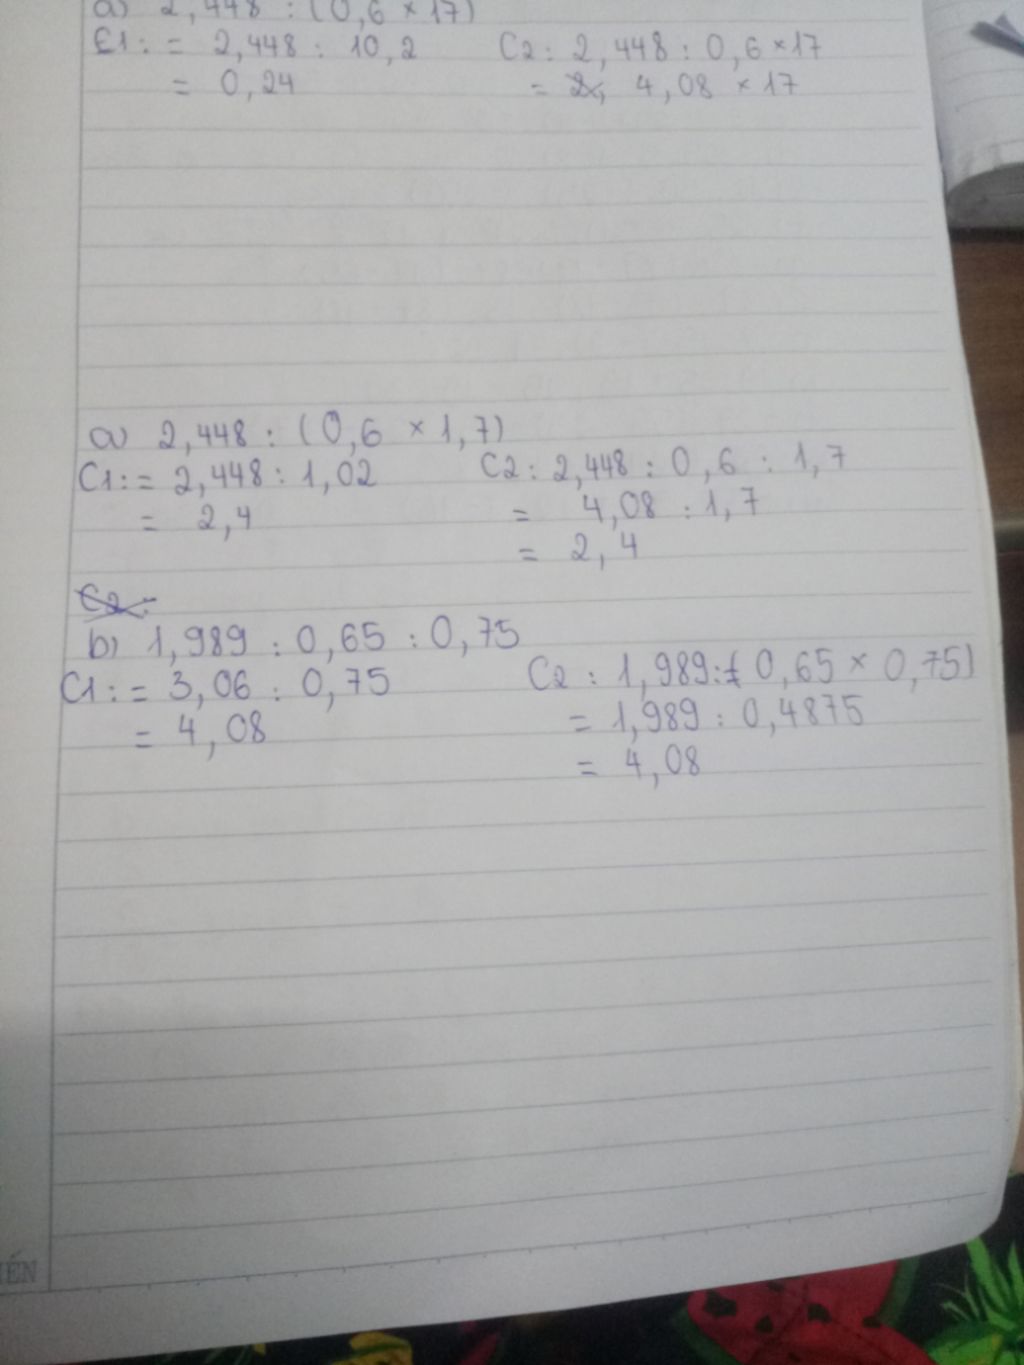 a) 2,448 : (0,6 × 17)
C1: = 2,448 : 10,2
= 0,24
C2: 2,448 : 0,6 × 17
= 4,08 × 17
a) 2,448 : (0,6 × 1,7)
C1: = 2,448 : 1,02
= 2,4
C2 : 2,448 : 0,6 : 1,7
= 4,08 : 1,7
= 2,4
C2:
b) 1,989 : 0,65 : 0,75
C1: = 3,06 : 0,75
= 4,08
C2 : 1,989:(0,65 × 0,75)
= 1,989 : 0,4875
= 4,08